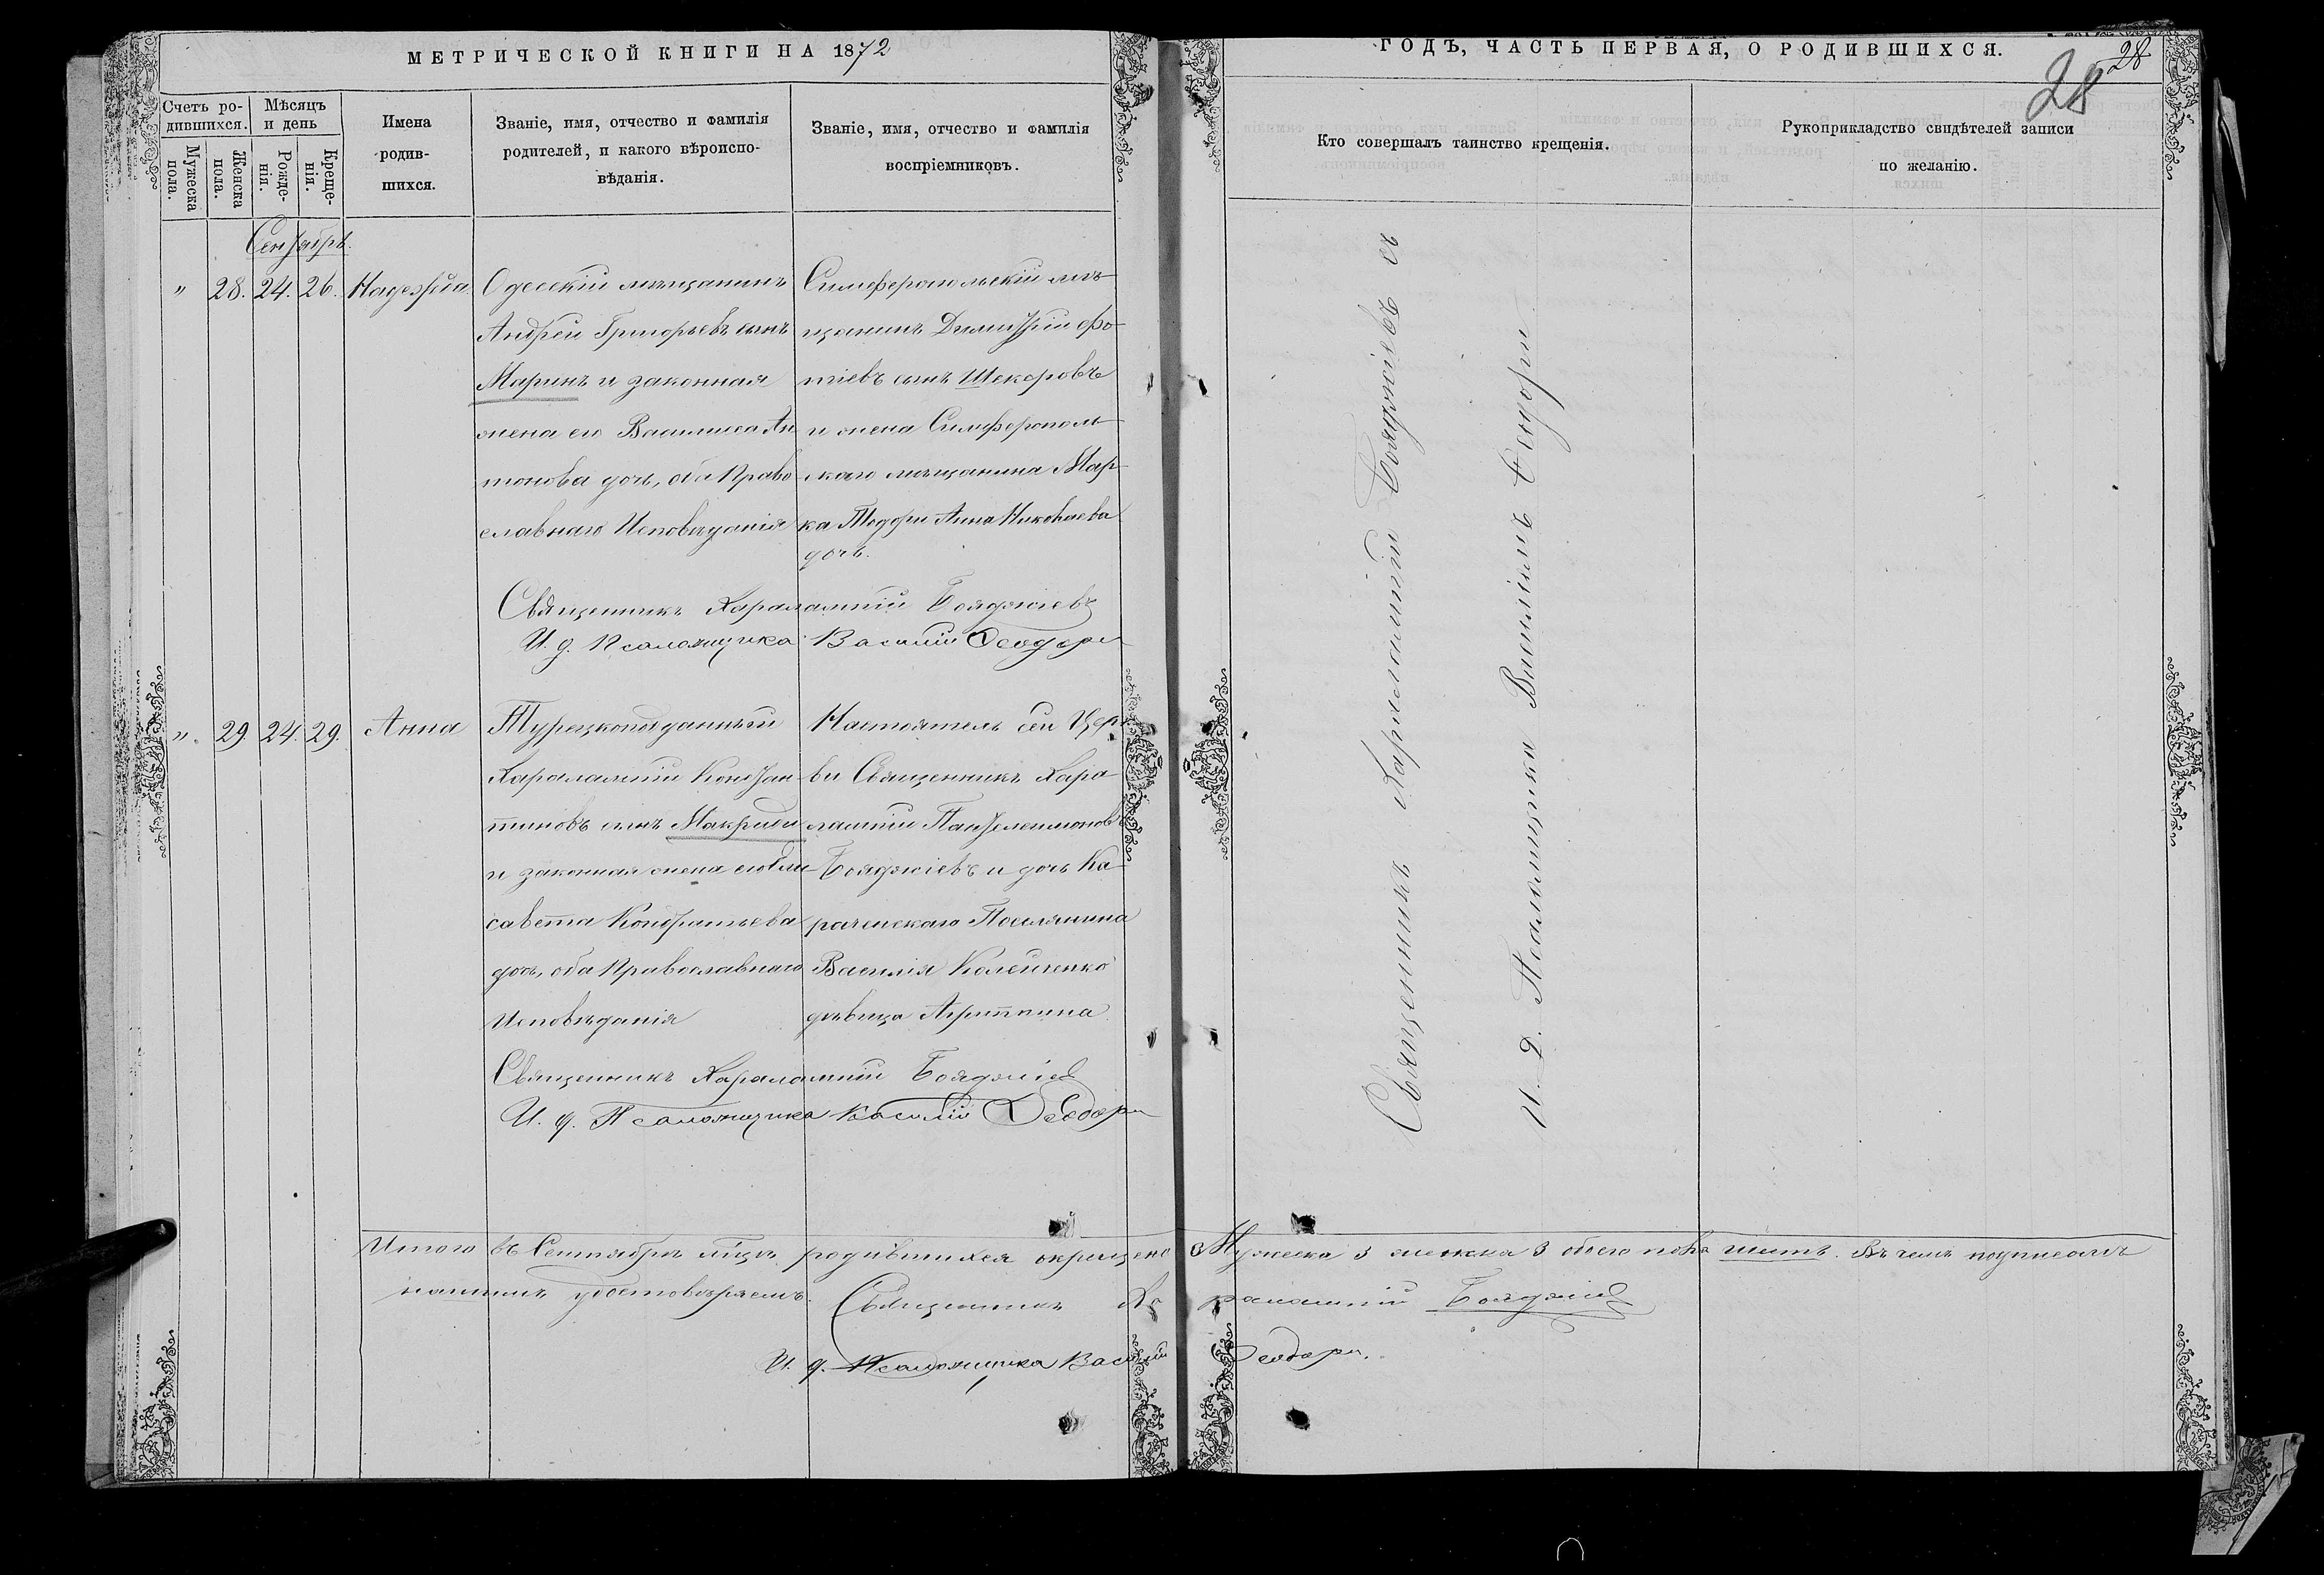 МЕТРИЧЕСКОЙ КНИГИ НА 1872
ГОДЪ, ЧАСТЬ ПЕРВАЯ, О РОДИВШИХСЯ.
28
28
Счетъ ро-
дившихся.
Мѣсяцъ
и день
Мужеска
пола.
Женска
пола.
Рожде-
нія.
Креще-
нія.
Имена
родив-
шихся.
Званіе, имя, отчество и фамилія
родителей, и какого вѣроиспо-
вѣданія.
Званіе, имя, отчество и фамилія
воспріемниковъ.
Кто совершалъ таинство крещенія.
Рукоприкладство свидѣтелей записи
по желанію.
Сентябрь.
" 28. 24. 26. Надежда
Одесскій мѣщанинъ
Андрей Григорьевъ сынъ
Маринъ и законная
жена его Василиса Ан
тонова дочь, оба Право
славнаго Исповѣданія
Симферопольскій мѣ-
щанинъ Димитрій Фо-
тіевъ сынъ Шекеровъ
и жена Симферополь-
скаго мѣщанина Мар-
ка Теодори Анна Николаева
дочь.
Священникъ Харалампій Бояджіевъ
И. д. Псаломщика Василій Ѳеодори
". 29. 24. 29. Анна
Турецкоподданный
Харалампій Констан-
тиновъ сынъ Макриди
и законная жена его Ели-
савета Кондратьева
дочь, оба Православнаго
Исповѣданія
Настоятель сей Церк-
ви Священникъ Хара-
лампій Пантелеимоновъ
Бояджіевъ и дочь Ка-
раченскаго Поселянина
Василія Колейченко
дѣвица Агрипина
Священникъ Харалампій Бояджіев
И. д. Псаломщика Василій Ѳеодори
Священникъ Харалампій Бояджіевъ съ
И. Д. Псаломщика Василіемъ Ѳеодори
Итого въ Сентябрѣ мѣцѣ родившихся окрещено Мужеска 3 женска 3 обоего пола шесть. Въ чемъ подписомъ
нашимъ удостовѣряемъ. Священникъ Харалампій Бояджіев
И. д. Псаломщика Василій Ѳеодори.